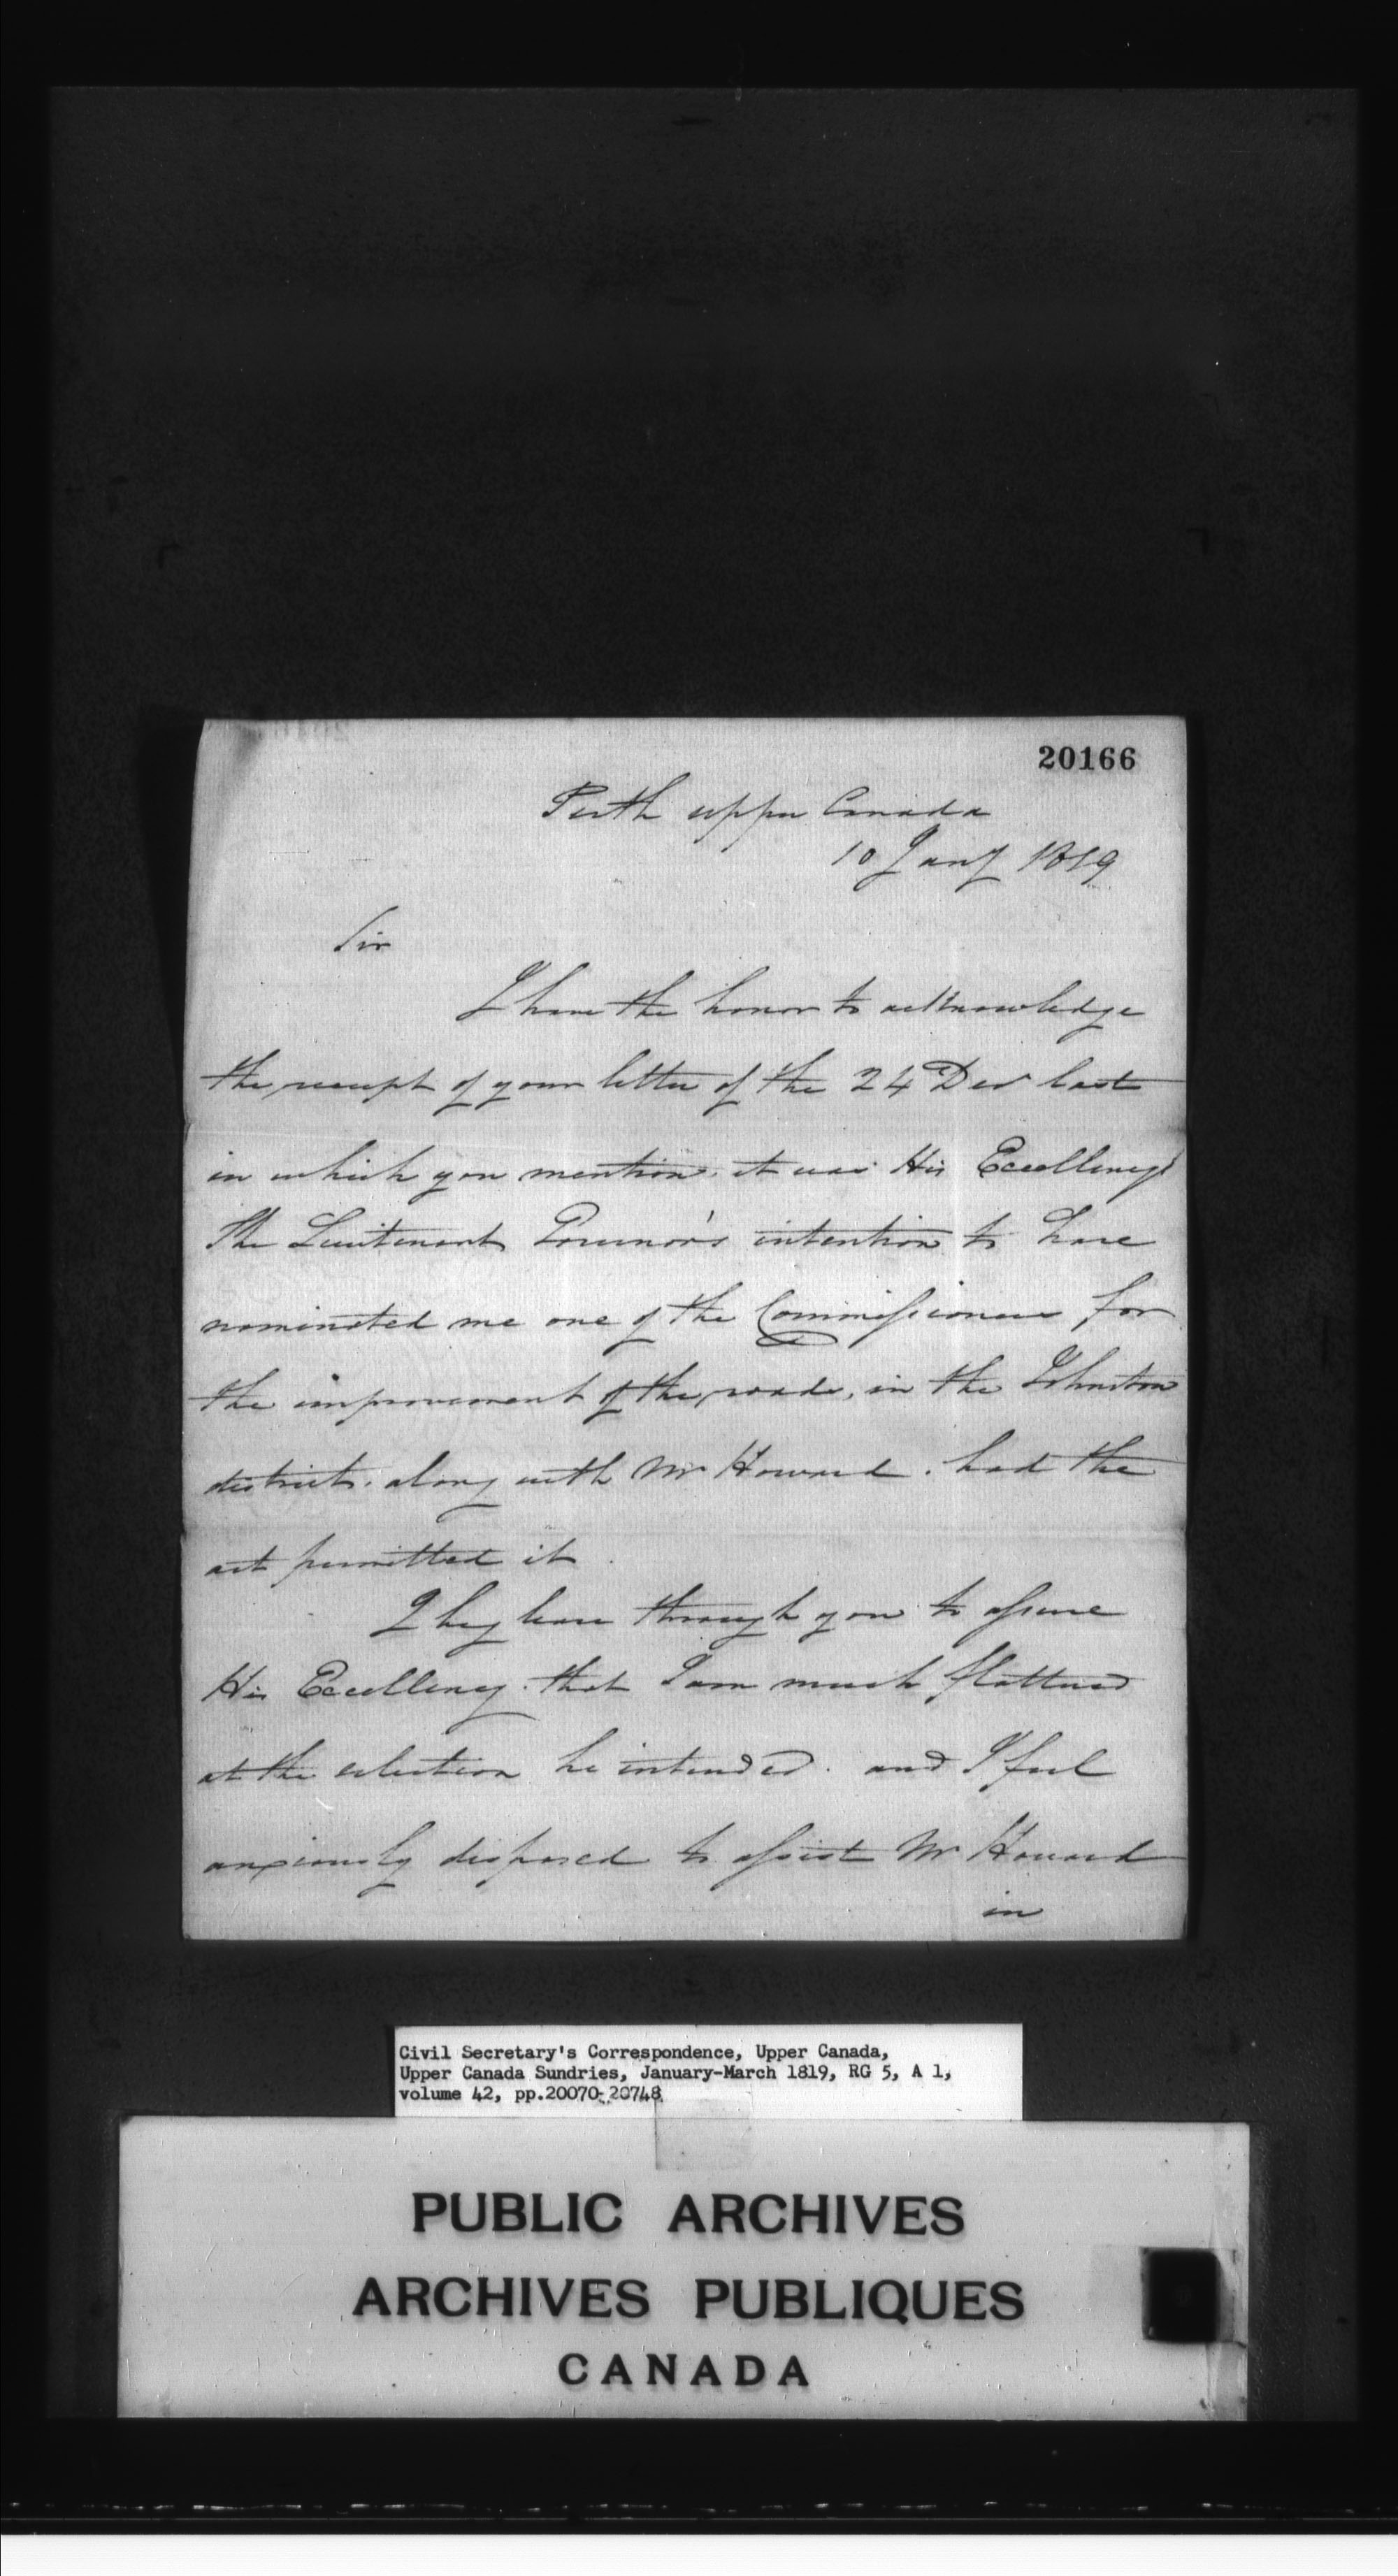 20166
Perth upper Canada
10 Jany 1819
Sir
I have the honor to acknowledge
the receipt of your letter of the 24 Decr last
in which you mention, it was His Excellency
The Lieutenant Governor's intention to have
nominated me one of the Commissioners for
the improvement of the roads, in the Johnston
district. along with Mr Howard. had the
act permitted it
I beg leave through you to assure
His Excellency. that I am much flattered
at the selection he intended. and I feel
anxiously disposed to assist Mr Howard
in
Civil Secretary's Correspondence, Upper Canada,
Upper Canada Sundries, January-March 1819, RG 5, A 1,
volume 42, pp.20070-20748
PUBLIC ARCHIVES
ARCHIVES PUBLIQUES
CANADA